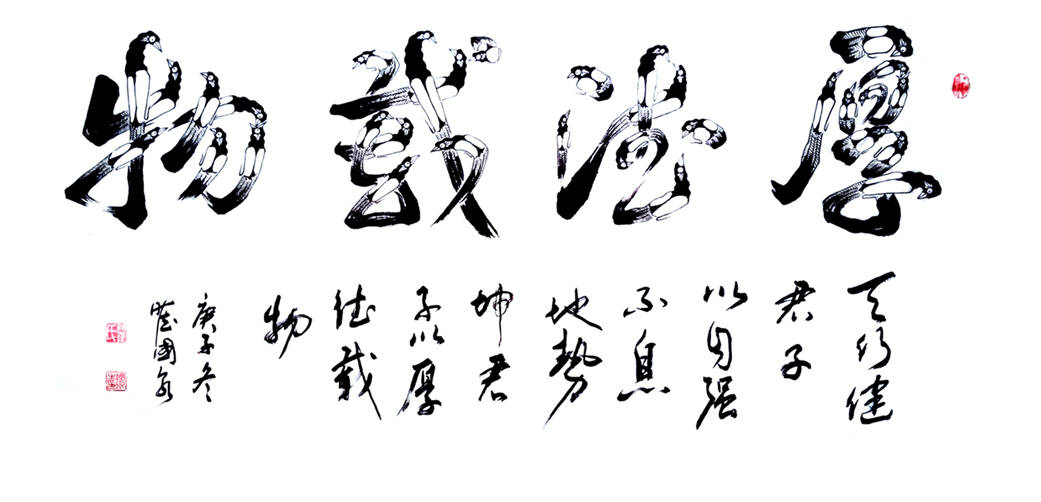 厚德載物
天行健
君子
以自强
不息
地勢
坤君
子以厚
德載
物
庚子冬
國泉